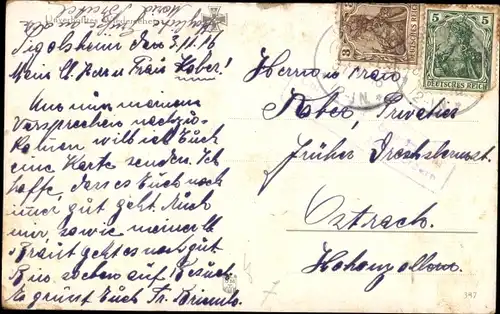 Sigolsheim den 3.11.16
Mein lb. Herr u. Frau Kober!
Um nun meinem
Versprechen nachzu-
kommen will ich Euch
eine Karte senden. Ich
hoffe, dass es Euch noch
immer gut geht. Auch
mir, sowie meiner lb.
Braut geht es noch gut
Bin soeben auf Besuch.
Es grüsst Euch Fr.
Herrn u. Frau
Kober, Privatier
früher
Ostrach.
Hohenzollern.
3
DEUTSCHES REICH
5
DEUTSCHES REICH
7
347